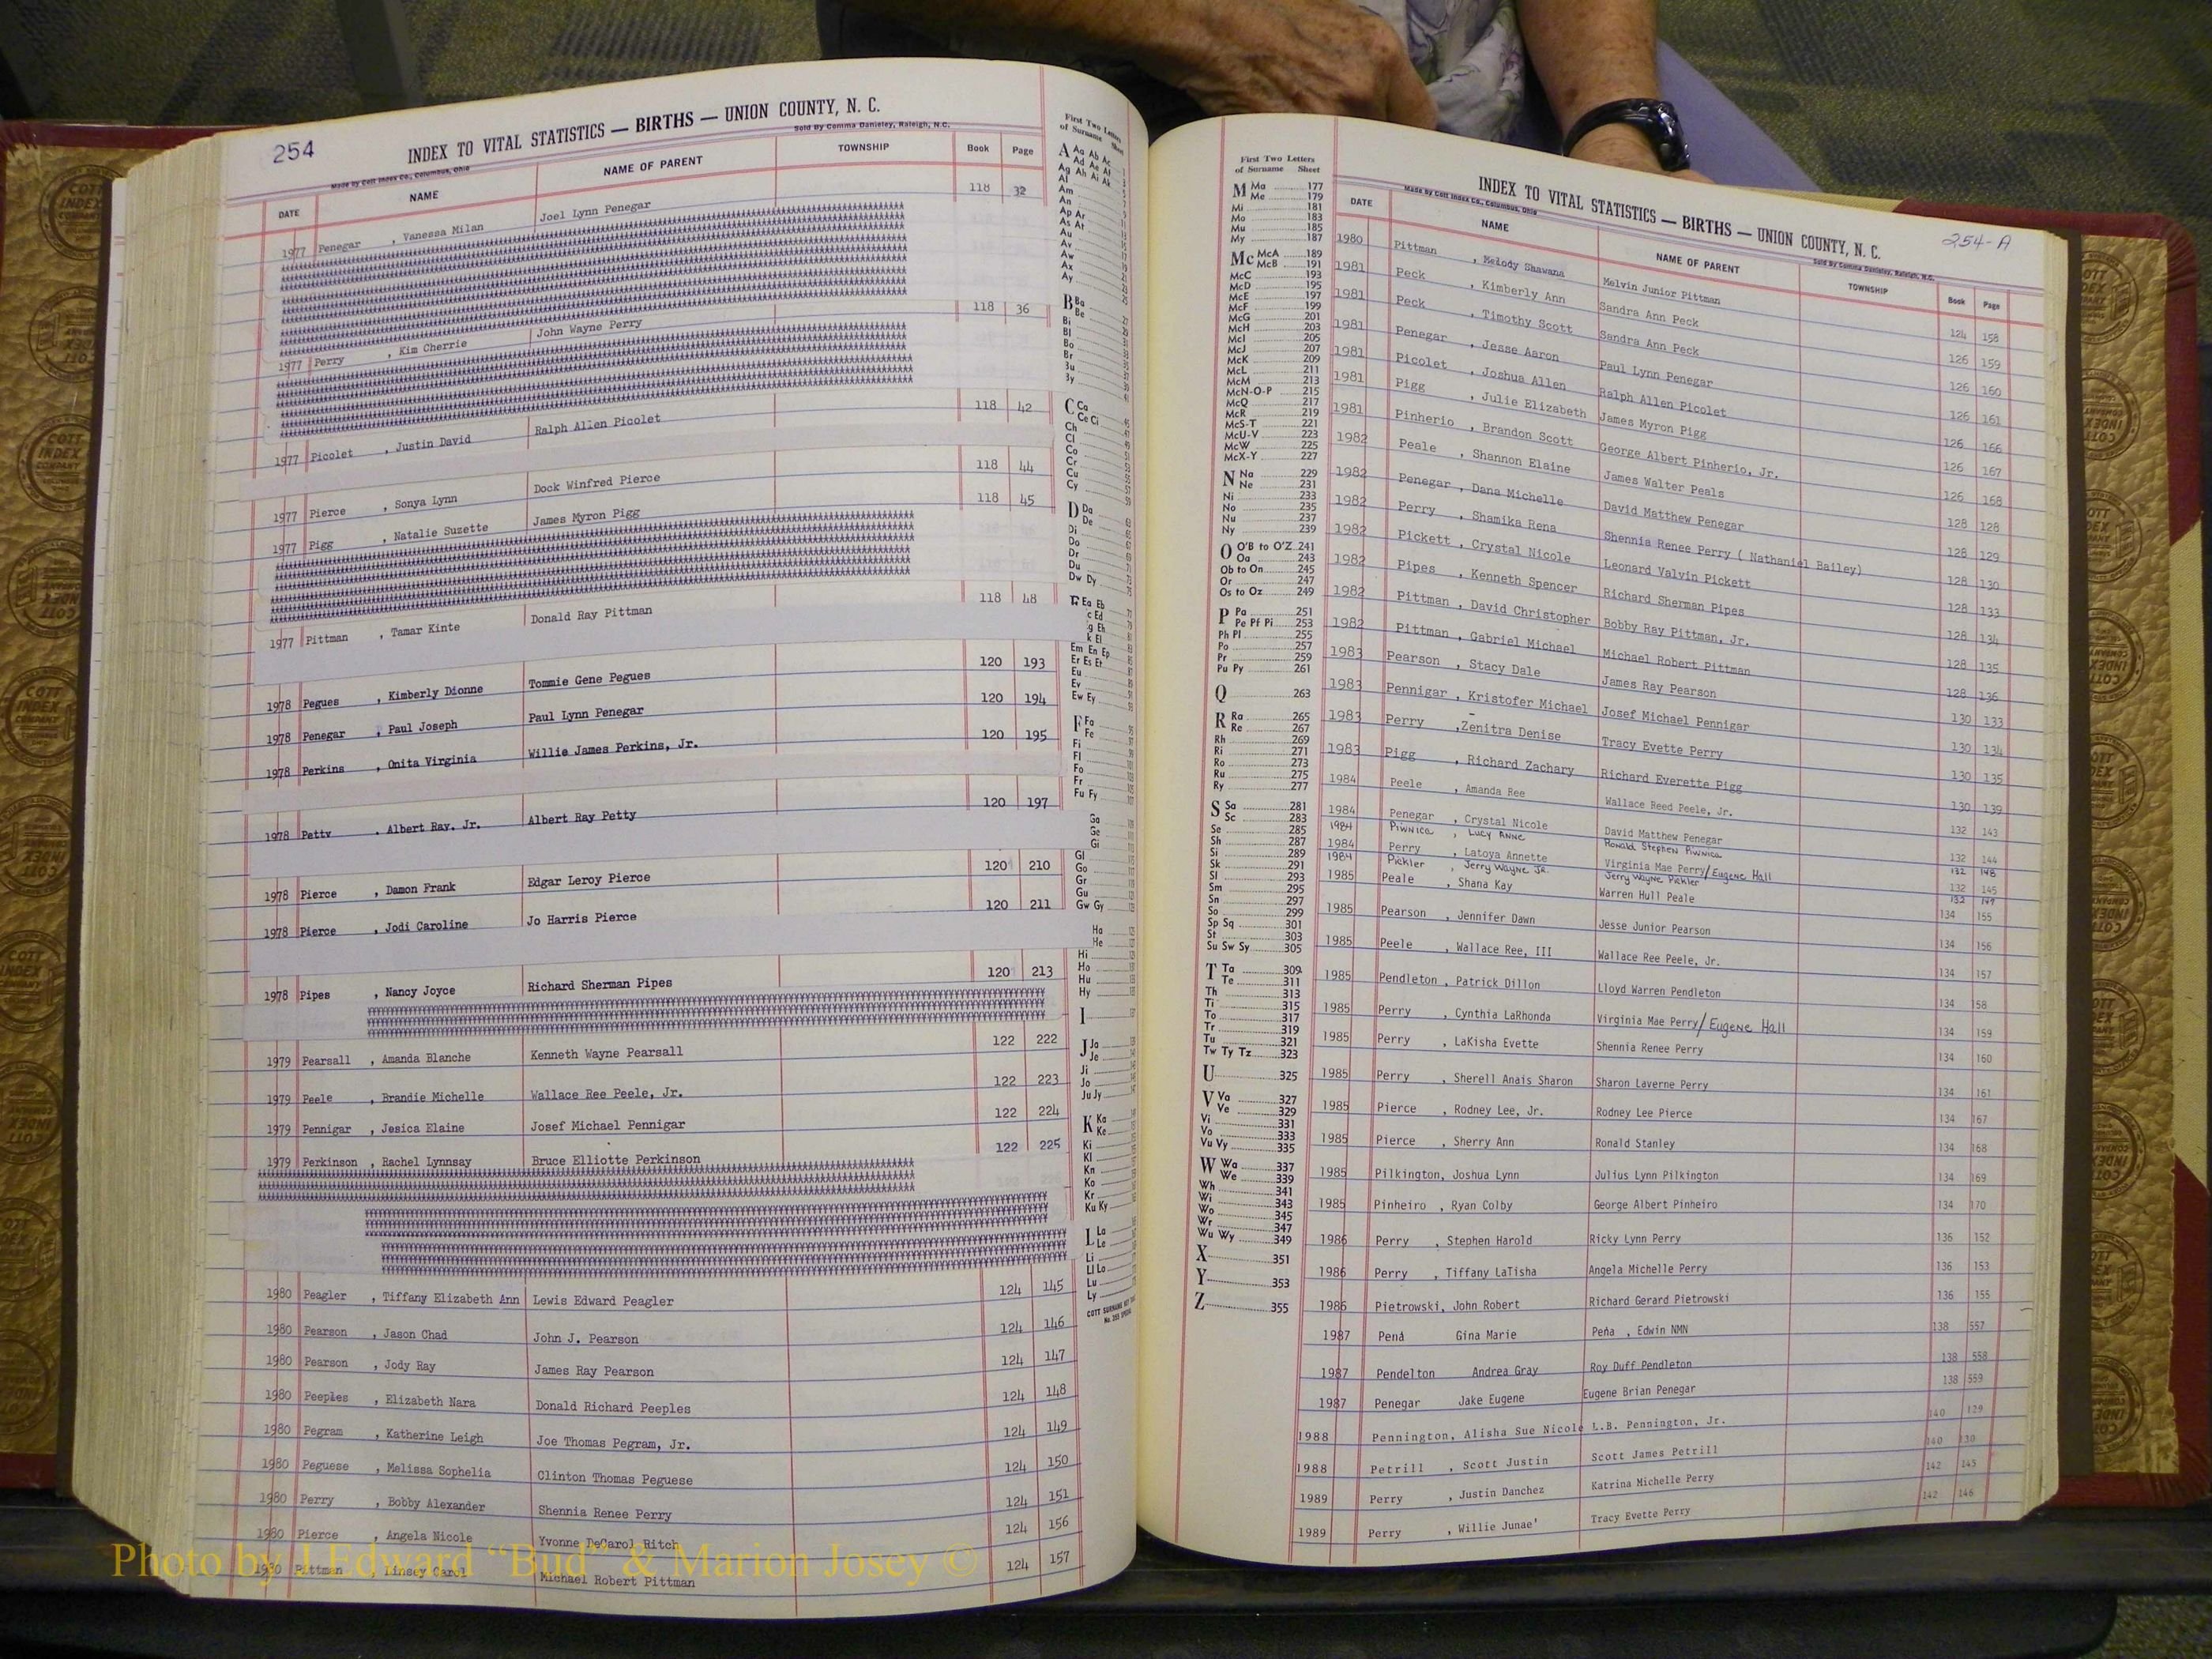 254
INDEX TO VITAL STATISTICS — BIRTHS — UNION COUNTY, N. C.
Made by Cott Index Co., Columbus, Ohio
Sold By Comma Danieley, Raleigh, N.C.
DATE NAME NAME OF PARENT TOWNSHIP Book Page
1977 Penegar , Vanessa Milan Joel Lynn Penegar 118 32
1977 Perry , Kim Cherrie John Wayne Perry 118 36
1977 Picolet , Justin David Ralph Allen Picolet 118 42
1977 Pierce , Sonya Lynn Dock Winfred Pierce 118 44
1977 Pigg , Natalie Suzette James Myron Pigg 118 45
1977 Pittman , Tamar Kinte Donald Ray Pittman 118 48
1978 Pegues , Kimberly Dionne Tommie Gene Pegues 120 193
1978 Penegar , Paul Joseph Paul Lynn Penegar 120 194
1978 Perkins , Onita Virginia Willie James Perkins, Jr. 120 195
1978 Petty , Albert Ray, Jr. Albert Ray Petty 120 197
1978 Pierce , Damon Frank Edgar Leroy Pierce 120 210
1978 Pierce , Jodi Caroline Jo Harris Pierce 120 211
1978 Pipes , Nancy Joyce Richard Sherman Pipes 120 213
1979 Pearsall , Amanda Blanche Kenneth Wayne Pearsall 122 222
1979 Peele , Brandie Michelle Wallace Ree Peele, Jr. 122 223
1979 Pennigar , Jesica Elaine Josef Michael Pennigar 122 224
1979 Perkinson , Rachel Lynnsay Bruce Elliotte Perkinson 122 225
1980 Peagler , Tiffany Elizabeth Ann Lewis Edward Peagler 124 145
1980 Pearson , Jason Chad John J. Pearson 124 146
1980 Pearson , Jody Ray James Ray Pearson 124 147
1980 Peeples , Elizabeth Nara Donald Richard Peeples 124 148
1980 Pegram , Katherine Leigh Joe Thomas Pegram, Jr. 124 149
1980 Peguese , Melissa Sophelia Clinton Thomas Peguese 124 150
1980 Perry , Bobby Alexander Shennia Renee Perry 124 151
1980 Pierce , Angela Nicole Yvonne DeCarol Ritch 124 156
1980 Pittman , Linsey Carol Michael Robert Pittman 124 157
First Two Letters
of Surname Sheet
A Aa Ab Ac
Ad Ae Af
Ag Ah Ai Ak
Al
Am
An
Ap Ar
As At
Au
Av
Aw
Ax
Ay
B Ba
Be
Bi
Bl
Bo
Br
C Ca
Ce Ci
Ch
Cl
Co
Cr
Cu
Cy
D Da
De
Di
Do
Dr
Du
Dw Dy
Ea Eb
Em En Ep
Er Es Et
Eu
Ev
Ew Ey
F Fa
Fe
Fi
Fl
Fo
Fr
Fu Fy
Ga
Ge
Gi
Gl
Go
Gr
Gu
Gw Gy
Ha
He
Hi
Ho
Hu
Hy
I
J Ja
Je
Ji
Jo
Ju Jy
K Ka
Ke
Ki
Kl
Kn
Ko
Kr
Ku Ky
L La
Le
Li
Ll Lo
Lu
Ly
First Two Letters
of Surname Sheet
M Ma 177
Me 179
Mi 181
Mo 183
Mu 185
My 187
Mc McA 189
McB 191
McC 193
McD 195
McE 197
McF 199
McG 201
McH 203
McI 205
McJ 207
McK 209
McL 211
McM 213
McN-O-P 215
McQ 217
McR 219
McS-T 221
McU-V 223
McW 225
McX-Y 227
N Na 229
Ne 231
Ni 233
No 235
Nu 237
Ny 239
O O'B to O'Z 241
Oa 243
Ob to On 245
Or 247
Os to Oz 249
P Pa 251
Pe Pf Pi 253
Ph Pl 255
Po 257
Pr 259
Pu Py 261
Q 263
R Ra 265
Re 267
Rh 269
Ri 271
Ro 273
Ru 275
Ry 277
S Sa 281
Sc 283
Se 285
Sh 287
Si 289
Sk 291
Sl 293
Sm 295
Sn 297
So 299
Sp Sq 301
St 303
Su Sw Sy 305
T Ta 309
Te 311
Th 313
Ti 315
To 317
Tr 319
Tu 321
Tw Ty Tz 323
U 325
V Va 327
Ve 329
Vi 331
Vo 333
Vu Vy 335
W Wa 337
We 339
Wh 341
Wi 343
Wo 345
Wr 347
Wu Wy 349
X 351
Y 353
Z 355
INDEX TO VITAL STATISTICS — BIRTHS — UNION COUNTY, N. C.
254-A
Made by Cott Index Co., Columbus, Ohio
Sold By Comma Danieley, Raleigh, N.C.
DATE NAME NAME OF PARENT TOWNSHIP Book Page
1980 Pittman , Melody Shawana Melvin Junior Pittman 124 158
1981 Peck , Kimberly Ann Sandra Ann Peck 126 159
1981 Peck , Timothy Scott Sandra Ann Peck 126 160
1981 Penegar , Jesse Aaron Paul Lynn Penegar 126 161
1981 Picolet , Joshua Allen Ralph Allen Picolet 126 166
1981 Pigg , Julie Elizabeth James Myron Pigg 126 167
1981 Pinherio , Brandon Scott George Albert Pinherio, Jr. 126 168
1982 Peale , Shannon Elaine James Walter Peals 128 128
1982 Penegar , Dana Michelle David Matthew Penegar 128 129
1982 Perry , Shamika Rena Shennia Renee Perry ( Nathaniel Bailey) 128 130
1982 Pickett , Crystal Nicole Leonard Valvin Pickett 128 133
1982 Pipes , Kenneth Spencer Richard Sherman Pipes 128 134
1982 Pittman , David Christopher Bobby Ray Pittman, Jr. 128 135
1982 Pittman , Gabriel Michael Michael Robert Pittman 128 136
1983 Pearson , Stacy Dale James Ray Pearson 130 133
1983 Pennigar , Kristofer Michael Josef Michael Pennigar 130 134
1983 Perry ,Zenitra Denise Tracy Evette Perry 130 135
1983 Pigg , Richard Zachary Richard Everette Pigg 130 139
1984 Peele , Amanda Ree Wallace Reed Peele, Jr. 132 143
1984 Penegar , Crystal Nicole David Matthew Penegar 132 144
1984 Piwnica , Lucy Anne Ronald Stephen Piwnica 132 148
1984 Perry , Latoya Annette Virginia Mae Perry/Eugene Hall 132 145
1984 Pickler , Jerry Wayne Jr. Jerry Wayne Pickler 132 147
1985 Peale , Shana Kay Warren Hull Peale 134 155
1985 Pearson , Jennifer Dawn Jesse Junior Pearson 134 156
1985 Peele , Wallace Ree, III Wallace Ree Peele, Jr. 134 157
1985 Pendleton , Patrick Dillon Lloyd Warren Pendleton 134 158
1985 Perry , Cynthia LaRhonda Virginia Mae Perry/Eugene Hall 134 159
1985 Perry , LaKisha Evette Shennia Renee Perry 134 160
1985 Perry , Sherell Anais Sharon Sharon Laverne Perry 134 161
1985 Pierce , Rodney Lee, Jr. Rodney Lee Pierce 134 167
1985 Pierce , Sherry Ann Ronald Stanley 134 168
1985 Pilkington, Joshua Lynn Julius Lynn Pilkington 134 169
1985 Pinheiro , Ryan Colby George Albert Pinheiro 134 170
1986 Perry , Stephen Harold Ricky Lynn Perry 136 152
1986 Perry , Tiffany LaTisha Angela Michelle Perry 136 153
1986 Pietrowski, John Robert Richard Gerard Pietrowski 136 155
1987 Pená Gina Marie Peña , Edwin NMN 138 557
1987 Pendelton Andrea Gray Roy Duff Pendleton 138 558
1987 Penegar Jake Eugene Eugene Brian Penegar 138 559
1988 Pennington, Alisha Sue Nicole L.B. Pennington, Jr. 140 129
1988 Petrill , Scott Justin Scott James Petrill 140 130
1989 Perry , Justin Danchez Katrina Michelle Perry 142 145
1989 Perry , Willie Junae' Tracy Evette Perry 142 146
Photo by J Edward “Bud” & Marion Josey ©